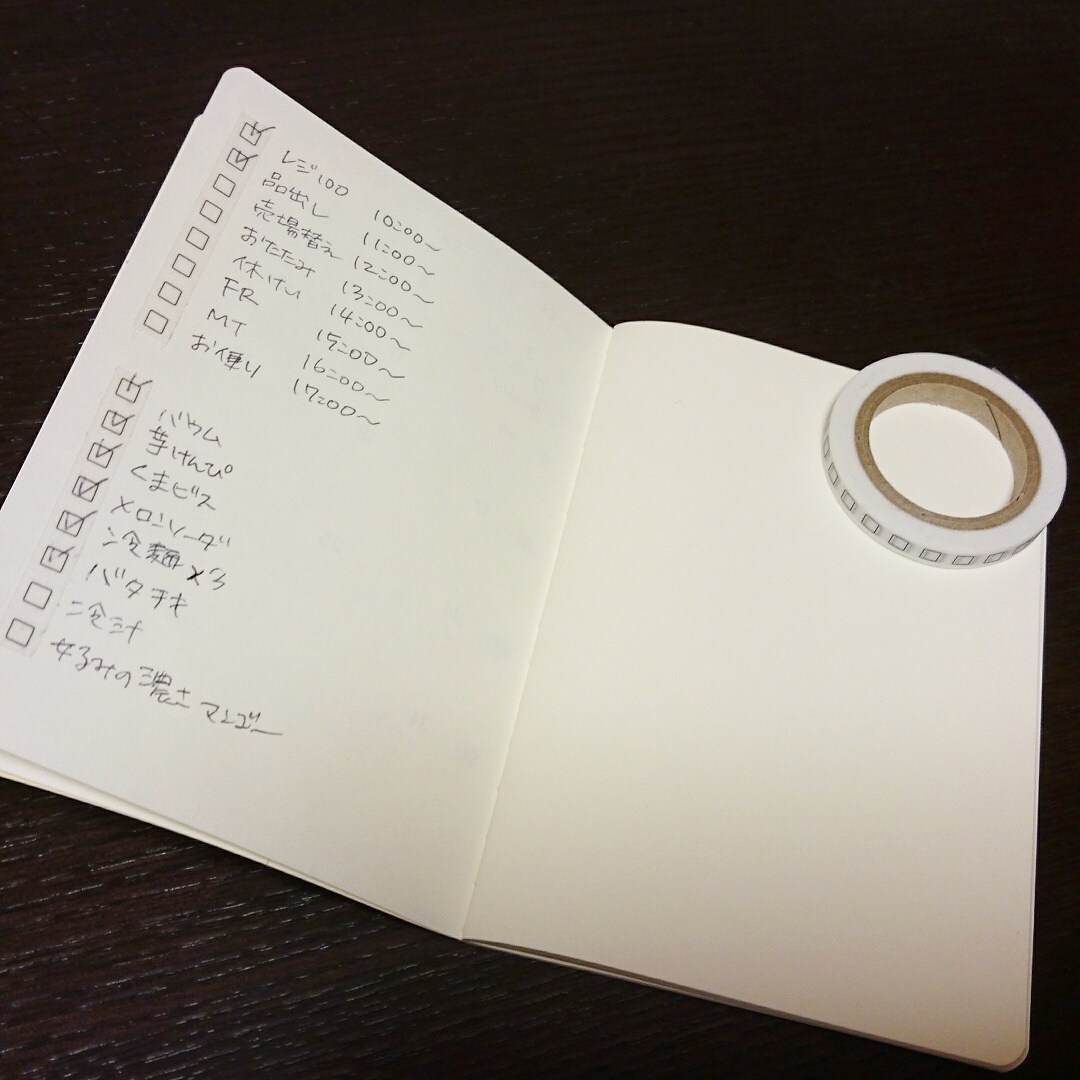 レジ100 10:00〜
品出し 11:00〜
売場替え 12:00〜
おたたみ 13:00〜
休けい 14:00〜
FR 15:00〜
MT 16:00〜
お便り 17:00〜
バウム
芋けんぴ
くまビス
メロンソーダ
冷麺×3
バタチキ
冷汁
なるみの濃さマンゴー